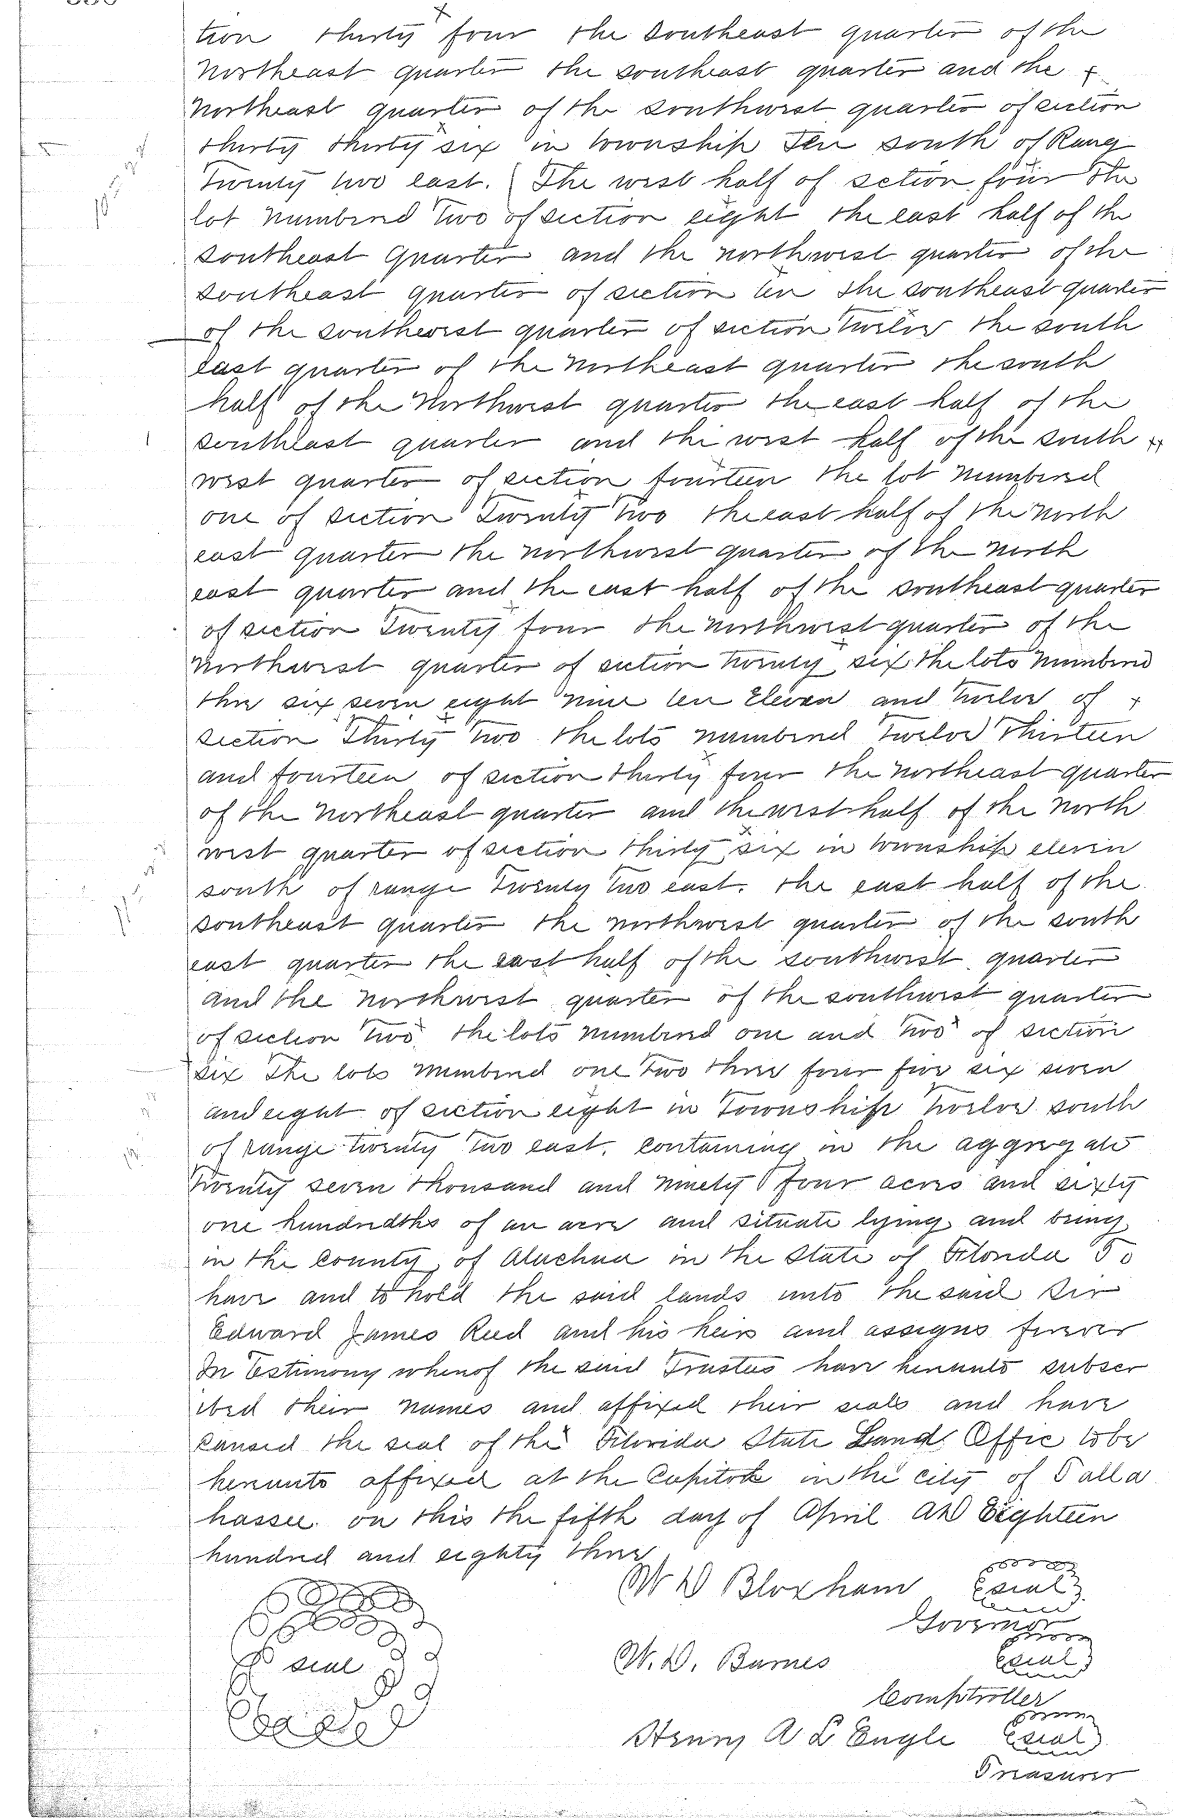 tion thirty four the southeast quarter of the
Northeast quarter the southeast quarter and the
Northeast quarter of the southwest quarter of section
thirty thirty six in township Ten south of Rang
Twenty two east. The west half of section four the
lot numbered Two of section eight the east half of the
southeast Quarter and the northwest quarter of the
southeast quarter of section ten the southeast quarter
of the southwest quarter of section Twelve the south
east quarter of the northeast quarter the south
half of the Northwest quarter the east half of the
southeast quarter and the west half of the south
west quarter of section fourteen the lot numbered
one of section Twenty Two the east half of the north
east quarter the northwest quarter of the north
east quarter and the east half of the southeast quarter
of section Twenty four the northwest quarter of the
Northwest quarter of section twenty six the lots numbered
three six seven eight nine ten Eleven and Twelve of
section Thirty Two the lots numbered Twelve Thirteen
and fourteen of section thirty four the northeast quarter
of the northeast quarter and the west half of the north
west quarter of section thirty six in township eleven
south of range Twenty Two east. the east half of the
southeast quarter the northwest quarter of the south
east quarter the east half of the southwest quarter
and the northwest quarter of the southwest quarter
of section Two the lots numbered one and Two of section
six The lots numbered one Two three four five six seven
and eight of section eight in Township Twelve south
of range twenty Two east. containing in the aggregate
Twenty seven thousand and ninety four acres and sixty
one hundredths of an acre and situate lying and being
in the county of Alachua in the State of Florida To
have and to hold the said lands unto the said Sir
Edward James Reed and his heirs and assigns forever
In Testimony whereof the said Trustees have hereunto subscr
ibed their names and affixed their seals and have
caused the seal of the Florida State Land Office to be
hereunto affixed at the Capitol in the city of Talla
hassee on this the fifth day of April AD Eighteen
hundred and eighty three
W D Bloxham seal
Governor
seal
W. D. Barnes seal
Comptroller
Henry A L Engle seal
Treasurer